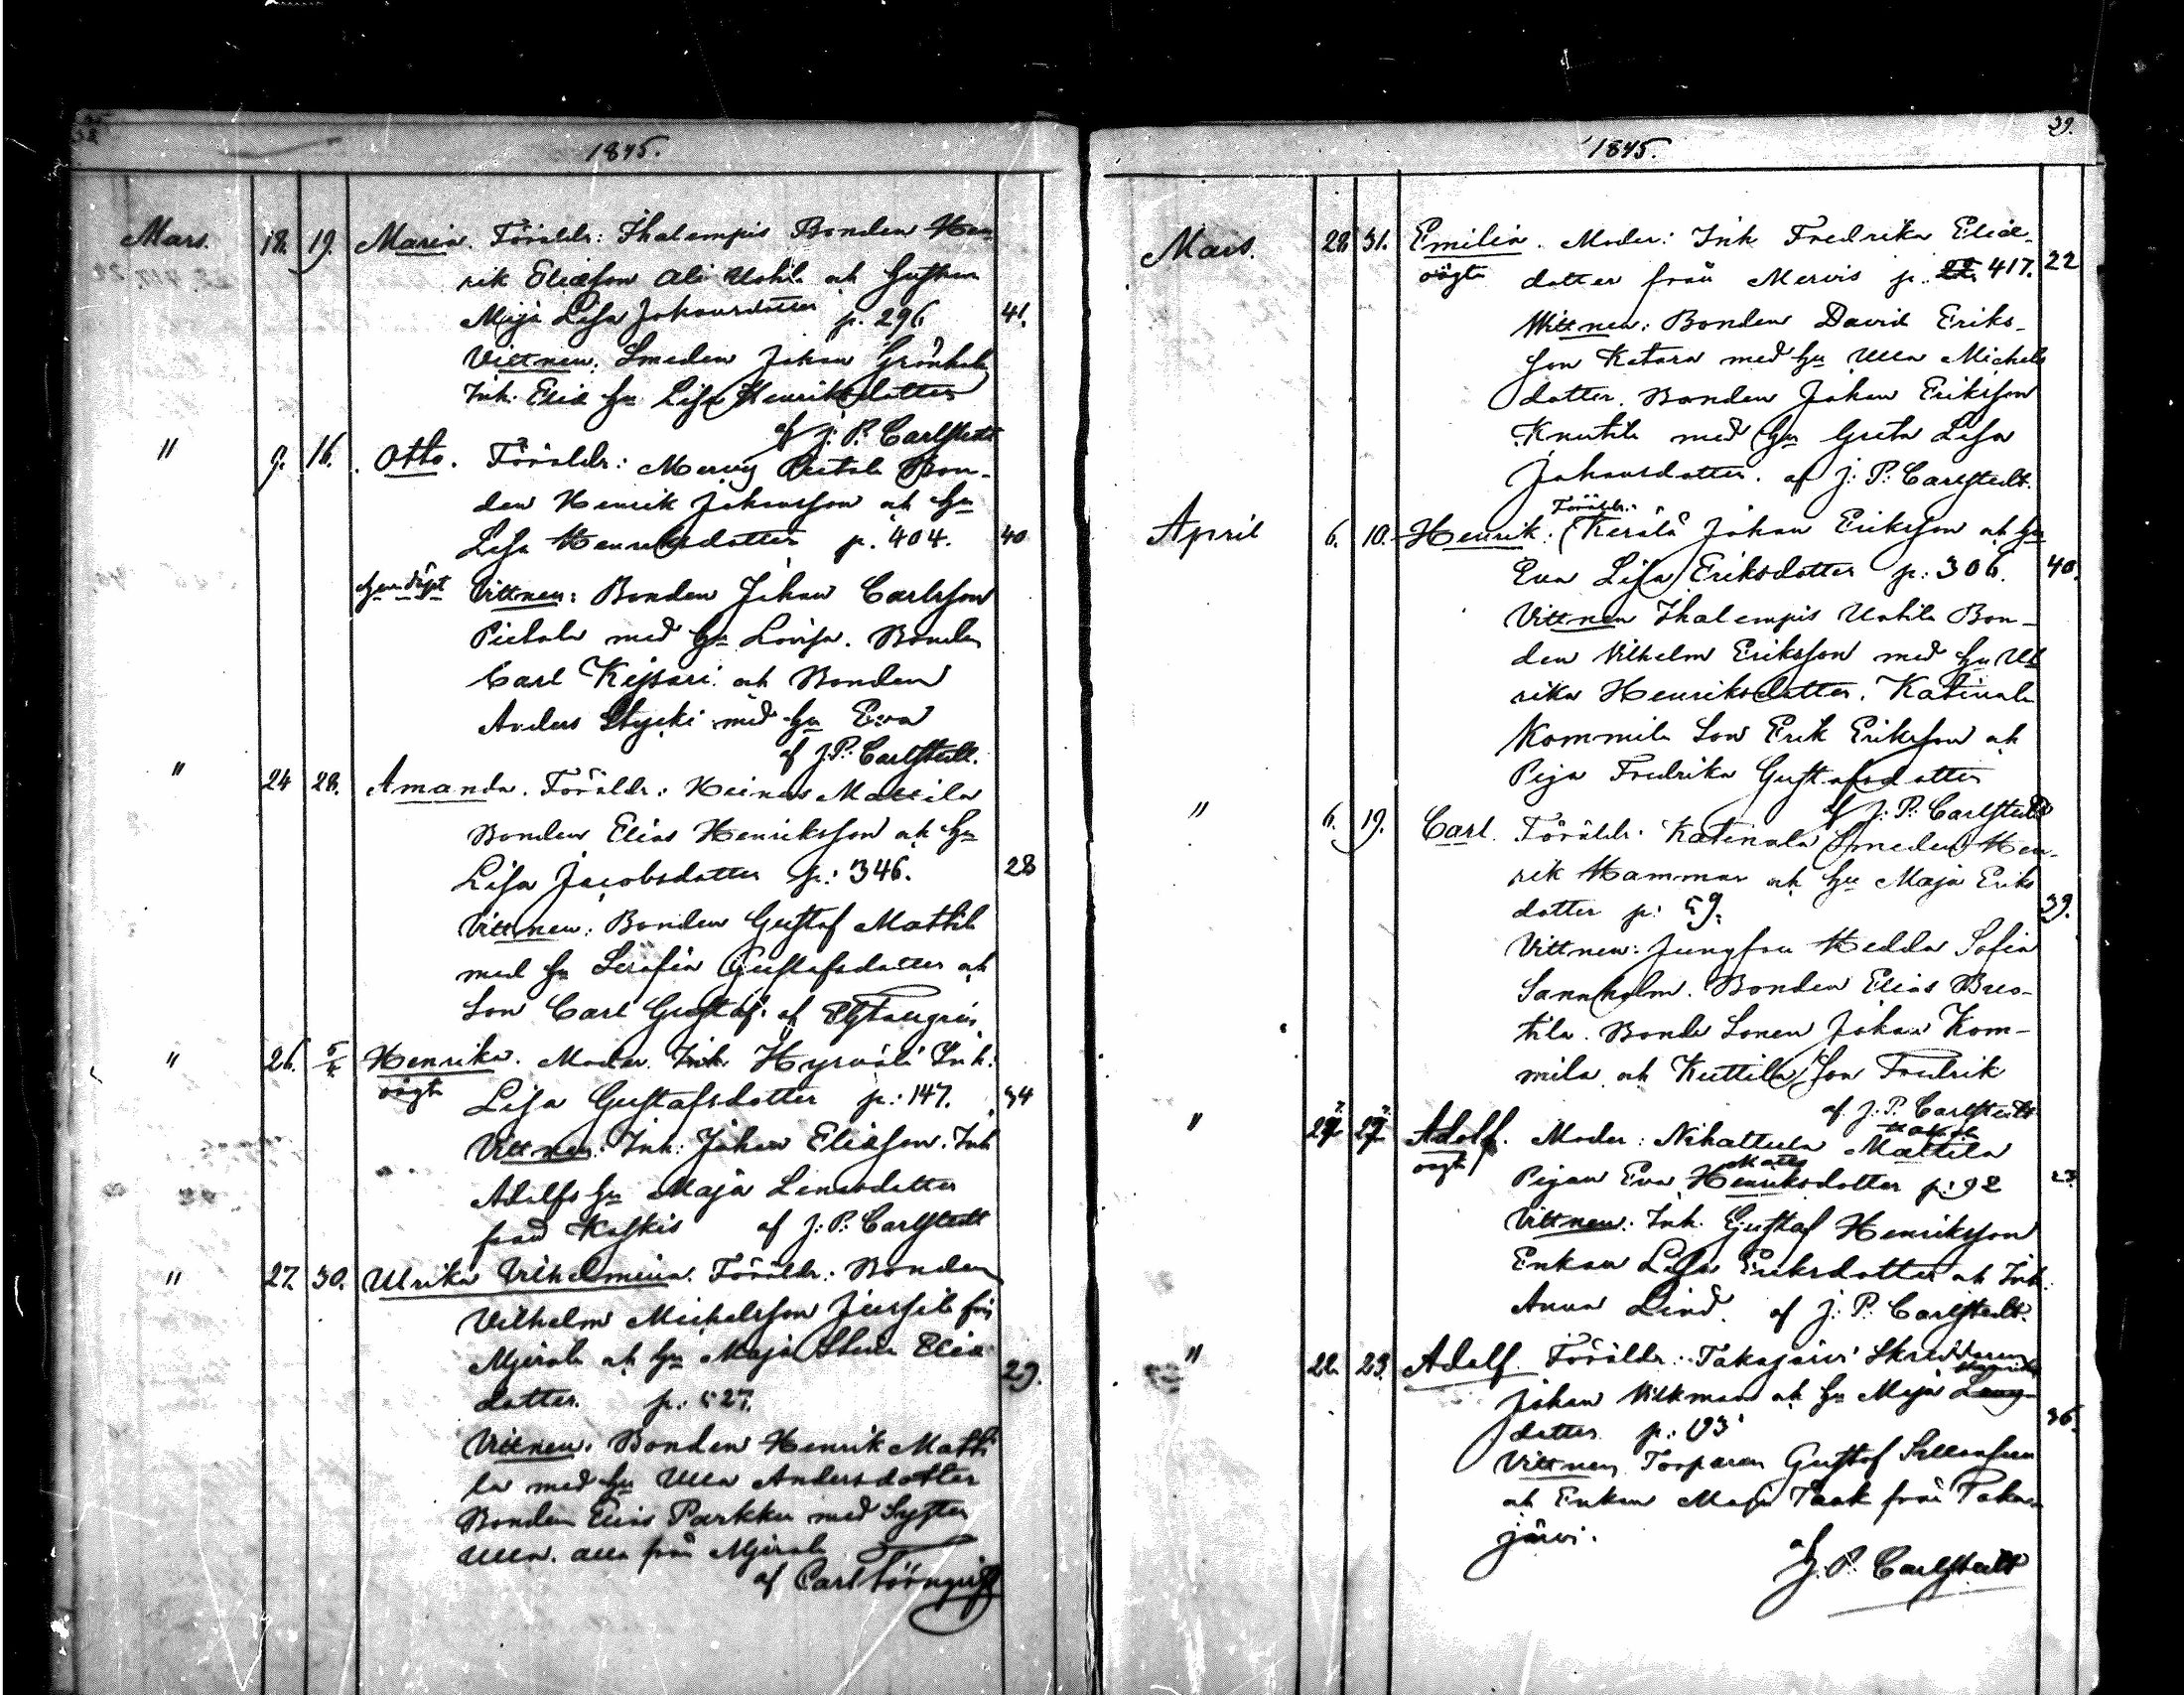 1845.
Mars. 18. 19. Maria. Föräldr: Ihalempis Bonden Hen-
rik Eliæson Ali Uotila och hustrun
Maja Lisa Johansdotter p. 296. 41.
Vittnen: Smeden Johan Grönholm
Inh. Eliæ hu Lisa Henriksdotter
af J. P. Carlstedt
" 9. 16. Otto. Föräldr: Mervis Pietola Bon-
den Henrik Johansson och hu
Lisa Henriksdotter p. 404. 40
hemdöpt Vittnen: Bonden Johan Carlsson
Pietola med hu Lovisa. Bonden
Carl och Bonden
Anders Stycki med hu Eva
af J. P. Carlstedt.
" 24 28. Amanda. Föräldr: Heinois Mattila
Bonden Elias Henriksson och hu
Lisa Jacobsdotter p: 346. 28
Vittnen: Bonden Gustaf Mattila
med hu Serafia Gustafsdotter och
Son Carl Gustaf. af
" 26. 5/4 Henrika. Moder. Inh. Hyrvälä Inh:
oägta Lisa Gustafsdotter p: 147. 34
Vittnen: Inh: Johan Eliæson. Inh
Adolfs hu Maja Lenasdotter
från Koskis af J. P. Carlstedt
" 27. 30. Ulrika Vilhelmina. Föräldr: Bonden
Vilhelm Michelsson Jussila från
Mjerola och hu Maja Stina Eliæ
dotter. p: 527. 29.
Vittnen. Bonden Henrik Matti
la med hu Ulla Andersdotter
Bonden Elias Parkku med Syster
Ulla. alla från Mjerola
af Carl Törnqvist
29.
1845.
Mars. 28. 31. Emilia. Moder: Inh Fredrika Eliæ-
oägta dotter från Mervis p. 417. 22
Vittnen: Bonden David Eriks-
son Katara med hu Ulla Michels
dotter. Bonden Johan Eriksson
Knutila med hu Greta Lisa
Johansdotter. af J. P. Carlstedt.
Föräldr:
April 6. 10. Henrik: Kerälä Johan Eriksson och hu
Eva Lisa Eriksdotter p: 306. 40.
Vittnen Ihalempis Uotila Bon-
den Vilhelm Eriksson med hu Ul
rika Henriksdotter. Katinala
Kommila Son Erik Eriksson och
Piga Fredrika Gustafsdotter
af J. P. Carlstedt
" 6. 19. Carl. Föräldr. Katinala Smeden Hen-
rik Hammar och hu Maja Eriks
dotter p: 59. 39.
Vittnen: Jungfru Hedda Sofia
Sannholm. Bonden Elias Bros-
tila. Bonde Sonen Johan Kom-
mila och Kuttila Son Fredrik
af J. P. Carlstedt
" 27. 27. Adolf. Moder: Nihattula Mattila
oägt Matts
Pigan Eva Henriksdotter p: 92 23.
Vittnen: Inh. Gustaf Henriksson
Enkan Lisa Eriksdotter och Inh.
Anna Lind. af J. P. Carlstedt.
" 22. 23. Adolf. Föräldr: Takajärvi Skräddaren
Johan Vilkman och hu Maja
dotter p: 193 36.
Vittnen Torparen Gustaf
och Enkan Maja Taak från Taka-
järvi. af
J. P. Carlstedt